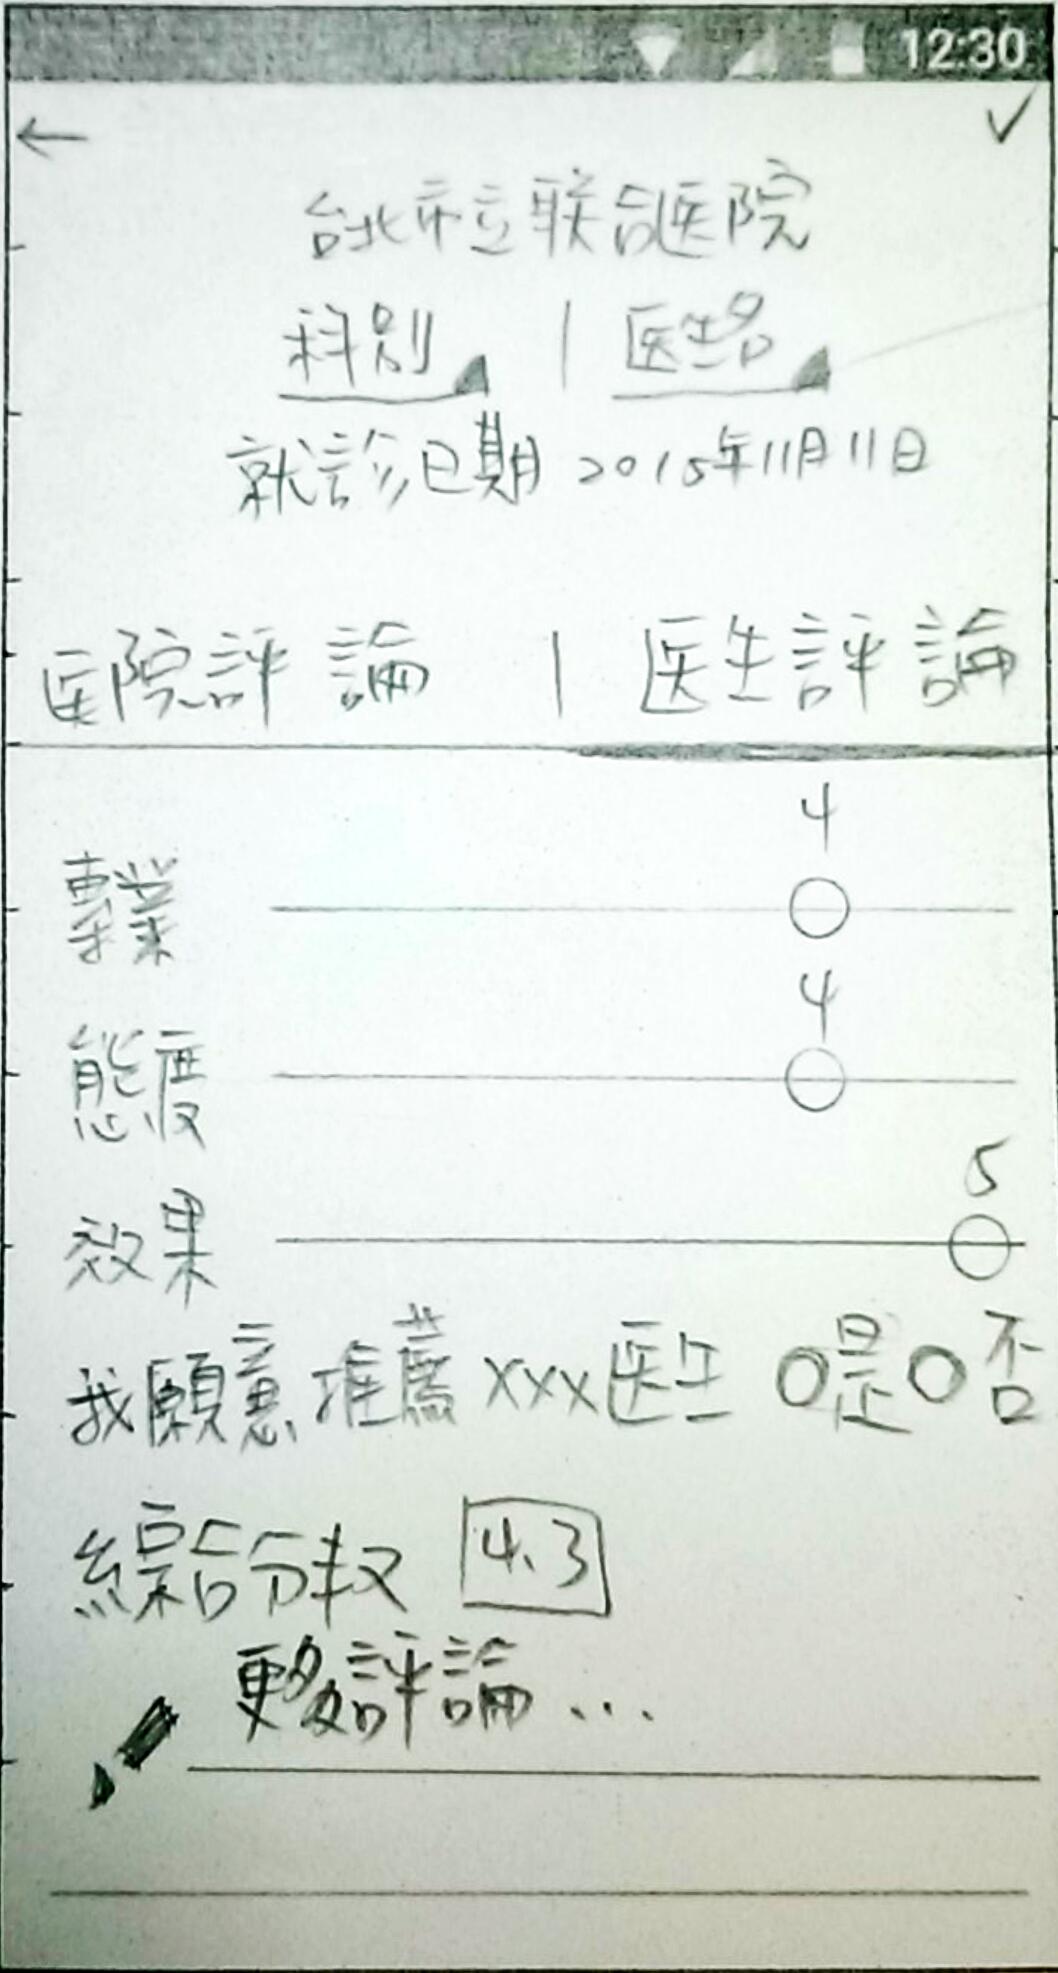 12:30
台北市立联合医院
科別 | 医生名
就診日期 2015年11月11日
医院評論 | 医生評論
4
專業
4
態度
5
效果
我願意推薦XXX医生 O是O否
綜合分数 4.3
更多評論...